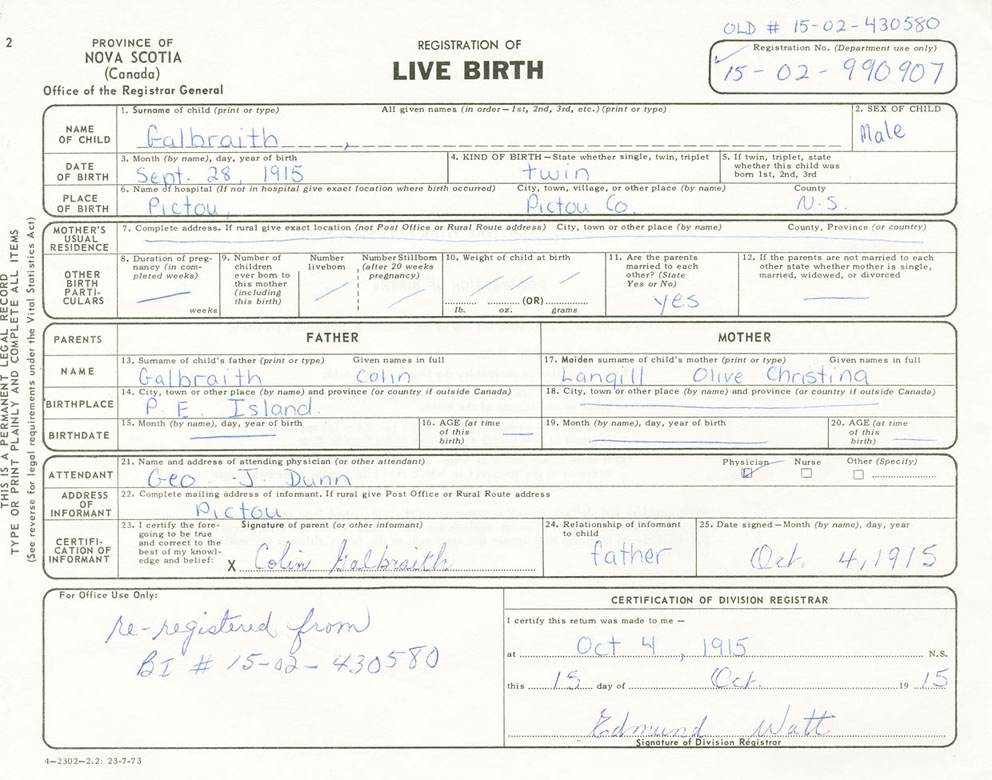 OLD # 15-02-430580
2
PROVINCE OF
NOVA SCOTIA
(Canada)
Office of the Registrar General
REGISTRATION OF
LIVE BIRTH
Registration No. (Department use only)
15-02-990907
THIS IS A PERMANENT LEGAL RECORD
TYPE OR PRINT PLAINLY AND COMPLETE ALL ITEMS
(See reverse for legal requirements under the Vital Statistics Act)
NAME
OF CHILD
1. Surname of child (print or type) All given names (in order—1st, 2nd, 3rd, etc.) (print or type)
Galbraith,
2. SEX OF CHILD
Male
DATE
OF BIRTH
3. Month (by name), day, year of birth
Sept. 28, 1915
4. KIND OF BIRTH—State whether single, twin, triplet
twin
5. If twin, triplet, state
whether this child was
born 1st, 2nd, 3rd
PLACE
OF BIRTH
6. Name of hospital (If not in hospital give exact location where birth occurred) City, town, village, or other place (by name) County
Pictou, Pictou Co. N.S.
MOTHER'S
USUAL
RESIDENCE
7. Complete address. If rural give exact location (not Post Office or Rural Route address) City, town or other place (by name) County, Province (or country)
OTHER
BIRTH
PARTI-
CULARS
8. Duration of preg-
nancy (in com-
pleted weeks)
weeks
9. Number of
children
ever born to
this mother
(including
this birth)
Number
liveborn
Number Stillborn
(after 20 weeks
pregnancy)
10. Weight of child at birth
(OR)
lb. oz. grams
11. Are the parents
married to each
other? (State
Yes or No)
yes
12. If the parents are not married to each
other state whether mother is single,
married, widowed, or divorced
PARENTS
FATHER
MOTHER
NAME
13. Surname of child's father (print or type) Given names in full
Galbraith Colin
17. Maiden surname of child's mother (print or type) Given names in full
Langill Olive Christina
BIRTHPLACE
14. City, town or other place (by name) and province (or country if outside Canada)
P. E. Island.
18. City, town or other place (by name) and province (or country if outside Canada)
BIRTHDATE
15. Month (by name), day, year of birth
16. AGE (at time
of this
birth)
19. Month (by name), day, year of birth
20. AGE (at time
of this
birth)
ATTENDANT
21. Name and address of attending physician (or other attendant)
Geo. J. Dunn
Physician Nurse Other (Specify)
ADDRESS
OF
INFORMANT
22. Complete mailing address of informant. If rural give Post Office or Rural Route address
Pictou
CERTIFI-
CATION OF
INFORMANT
23. I certify the fore-
going to be true
and correct to the
best of my knowl-
edge and belief:
Signature of parent (or other informant)
X Colin Galbraith
24. Relationship of informant
to child
father
25. Date signed—Month (by name), day, year
Oct. 4, 1915
For Office Use Only:
re-registered from
BI # 15-02-430580
CERTIFICATION OF DIVISION REGISTRAR
I certify this return was made to me —
at Oct 4, 1915 N.S.
this 15 day of Oct. 19 15
Edmund Watt
Signature of Division Registrar
4—2302—2.2: 23-7-73